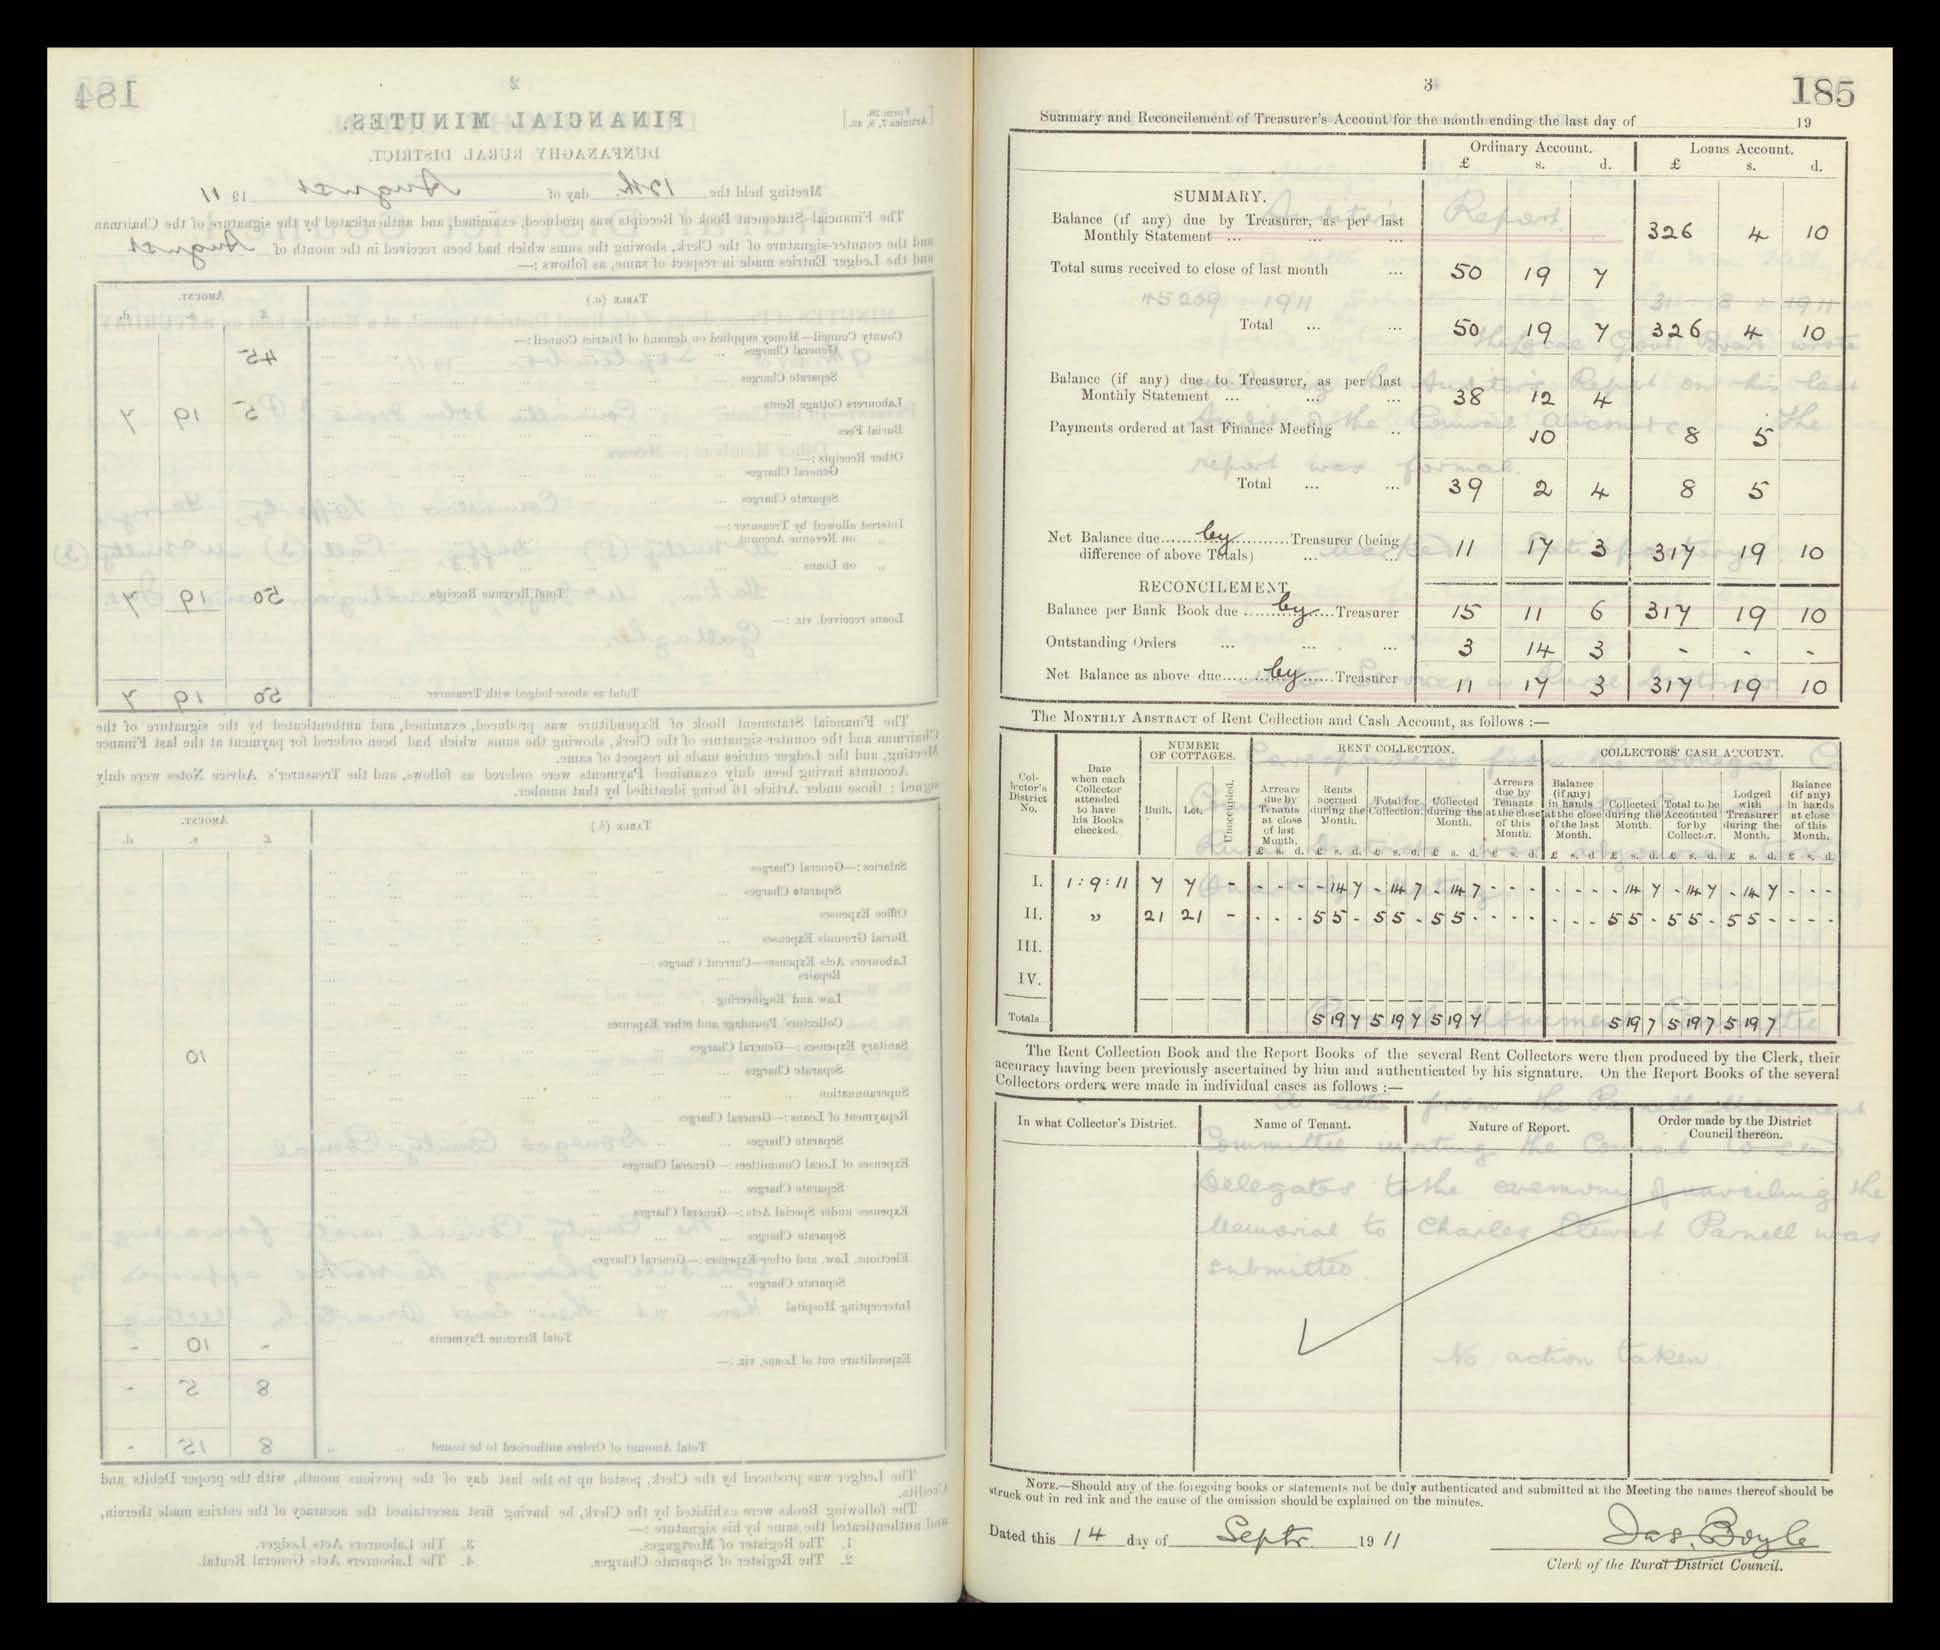 184
2
FINANCIAL MINUTES.
DUNFANAGHY RURAL DISTRICT.
Meeting held the 12th. day of August 1911
The Financial Statement Book of Receipts was produced, examined, and authenticated by the signature of the Chairman
and the counter-signature of the Clerk, showing the sums which had been received in the month of August
and the Ledger Entries made in respect of same, as follows :—
TABLE (a.) AMOUNT.
£ s. d.
County Council—Money supplied on demand of District Council :—
General Charges 45
Separate Charges
Labourers Cottage Rents 5 19 7
Burial Fees
Other Receipts :—
General Charges
Separate Charges
Interest allowed by Treasurer :—
" on Revenue Account
" on Loans
Total Revenue Receipts 50 19 7
Loans received, viz. :—
Total as above lodged with Treasurer 50 19 7
The Financial Statement Book of Expenditure was produced, examined, and authenticated by the signature of the
Chairman and the counter-signature of the Clerk, showing the sums which had been ordered for payment at the last Finance
Meeting, and the Ledger entries made in respect of same.
Accounts having been duly examined Payments were ordered as follows, and the Treasurer's Advice Notes were duly
signed ; those under Article 16 being identified by that number.
TABLE (b.) AMOUNT.
£ s. d.
Salaries :—General Charges
Separate Charges
Office Expenses
Burial Grounds Expenses
Labourers Acts Expenses—Current Charges :—
Repairs
Law and Engineering
Collectors' Poundage and other Expenses
Sanitary Expenses :—General Charges 10
Separate Charges
Superannuation
Repayment of Loans :—General Charges
Separate Charges
Expenses of Local Committees :—General Charges
Separate Charges
Expenses under Special Acts :—General Charges
Separate Charges
Elections, Law, and other Expenses :—General Charges
Separate Charges
Intercepting Hospital
Total Revenue Payments - 10 -
Expenditure out of Loans, viz. :—
8 5 -
Total Amount of Orders authorised to be issued 8 15 -
The Ledger was produced by the Clerk, posted up to the last day of the previous month, with the proper Debits and
Credits.
The following Books were exhibited by the Clerk, he having first ascertained the accuracy of the entries made therein,
and authenticated the same by his signature :—
1. The Register of Mortgages. 3. The Labourers Acts Ledger.
2. The Register of Separate Charges. 4. The Labourers Acts General Rental.
3
185
Summary and Reconcilement of Treasurer's Account for the month ending the last day of 19
Ordinary Account. Loans Account.
£ s. d. £ s. d.
SUMMARY.
Balance (if any) due by Treasurer, as per last
Monthly Statement ... ... ... 326 4 10
Total sums received to close of last month ... 50 19 7
Total ... ... 50 19 7 326 4 10
Balance (if any) due to Treasurer, as per last
Monthly Statement ... ... ... 38 12 4
Payments ordered at last Finance Meeting .. 10 8 5
Total ... ... 39 2 4 8 5
Net Balance due......by.........Treasurer (being
difference of above Totals) ... ... 11 17 3 317 19 10
RECONCILEMENT
Balance per Bank Book due ......by....Treasurer 15 11 6 317 19 10
Outstanding Orders ... ... ... 3 14 3 - - -
Net Balance as above due......by......Treasurer 11 17 3 317 19 10
The MONTHLY ABSTRACT of Rent Collection and Cash Account, as follows :—
Collector's District No.
Date when each Collector attended to have his Books checked.
NUMBER OF COTTAGES.
Built. Let. Unoccupied.
RENT COLLECTION.
Arrears due by Tenants at close of last Month.
Rents accrued during the Month.
Total for Collection.
Collected during the Month.
Arrears due by Tenants at the close of this Month.
COLLECTORS' CASH ACCOUNT.
Balance (if any) in hands at the close of the last Month.
Collected during the Month.
Total to be Accounted for by Collector.
Lodged with Treasurer during the Month.
Balance (if any) in hands at close of this Month.
£ s. d. £ s. d. £ s. d. £ s. d. £ s. d. £ s. d. £ s. d. £ s. d. £ s. d. £ s. d.
I. 1:9:11 7 7 - - - - - 14 7 - 14 7 - 14 7 - - - - - - - 14 7 - 14 7 - 14 7 - - -
II. " 21 21 - - - - 5 5 - 5 5 - 5 5 - - - - - - - 5 5 - 5 5 - 5 5 - - - -
III.
IV.
Totals 5 19 7 5 19 7 5 19 7 5 19 7 5 19 7 5 19 7
The Rent Collection Book and the Report Books of the several Rent Collectors were then produced by the Clerk, their
accuracy having been previously ascertained by him and authenticated by his signature. On the Report Books of the several
Collectors orders were made in individual cases as follows :—
In what Collector's District. Name of Tenant. Nature of Report. Order made by the District Council thereon.
NOTE.—Should any of the foregoing books or statements not be duly authenticated and submitted at the Meeting the names thereof should be
struck out in red ink and the cause of the omission should be explained on the minutes.
Dated this 14 day of Septr. 1911
Jas. Boyle
Clerk of the Rural District Council.